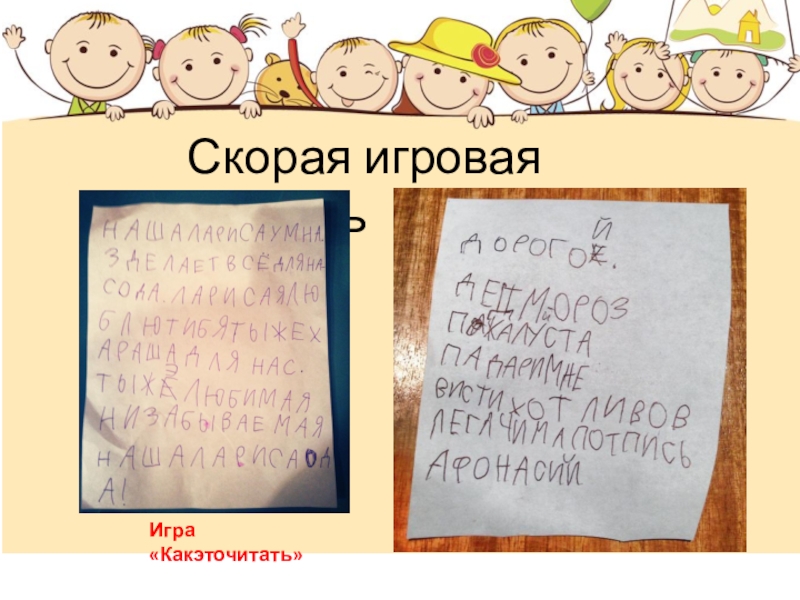 Скорая игровая
ь
НАШАЛАРИСАУМНА
ЗДЕЛАЕТВСЁДЛЯНА
СОДА.ЛАРИСАЯЛЮ
БЛЮТИБЯТЫЖЕХ
АРАШАДЛЯ НАС.
ТЫЖЕ ЛЮБИМАЯ
НИЗАБЫВАЕМАЯ
НАШАЛАРИСАОД
А!
ДОРОГОЙ.
ДЕД МОРОЗ
ПАЖАЛУСТА
ПАДАРИМНЕ
ВИСТИХОТ ЛИВОВ
ЛЕГАЧИМАПОТПИСЬ
АФОНАСИЙ
Игра
«Какэточитать»